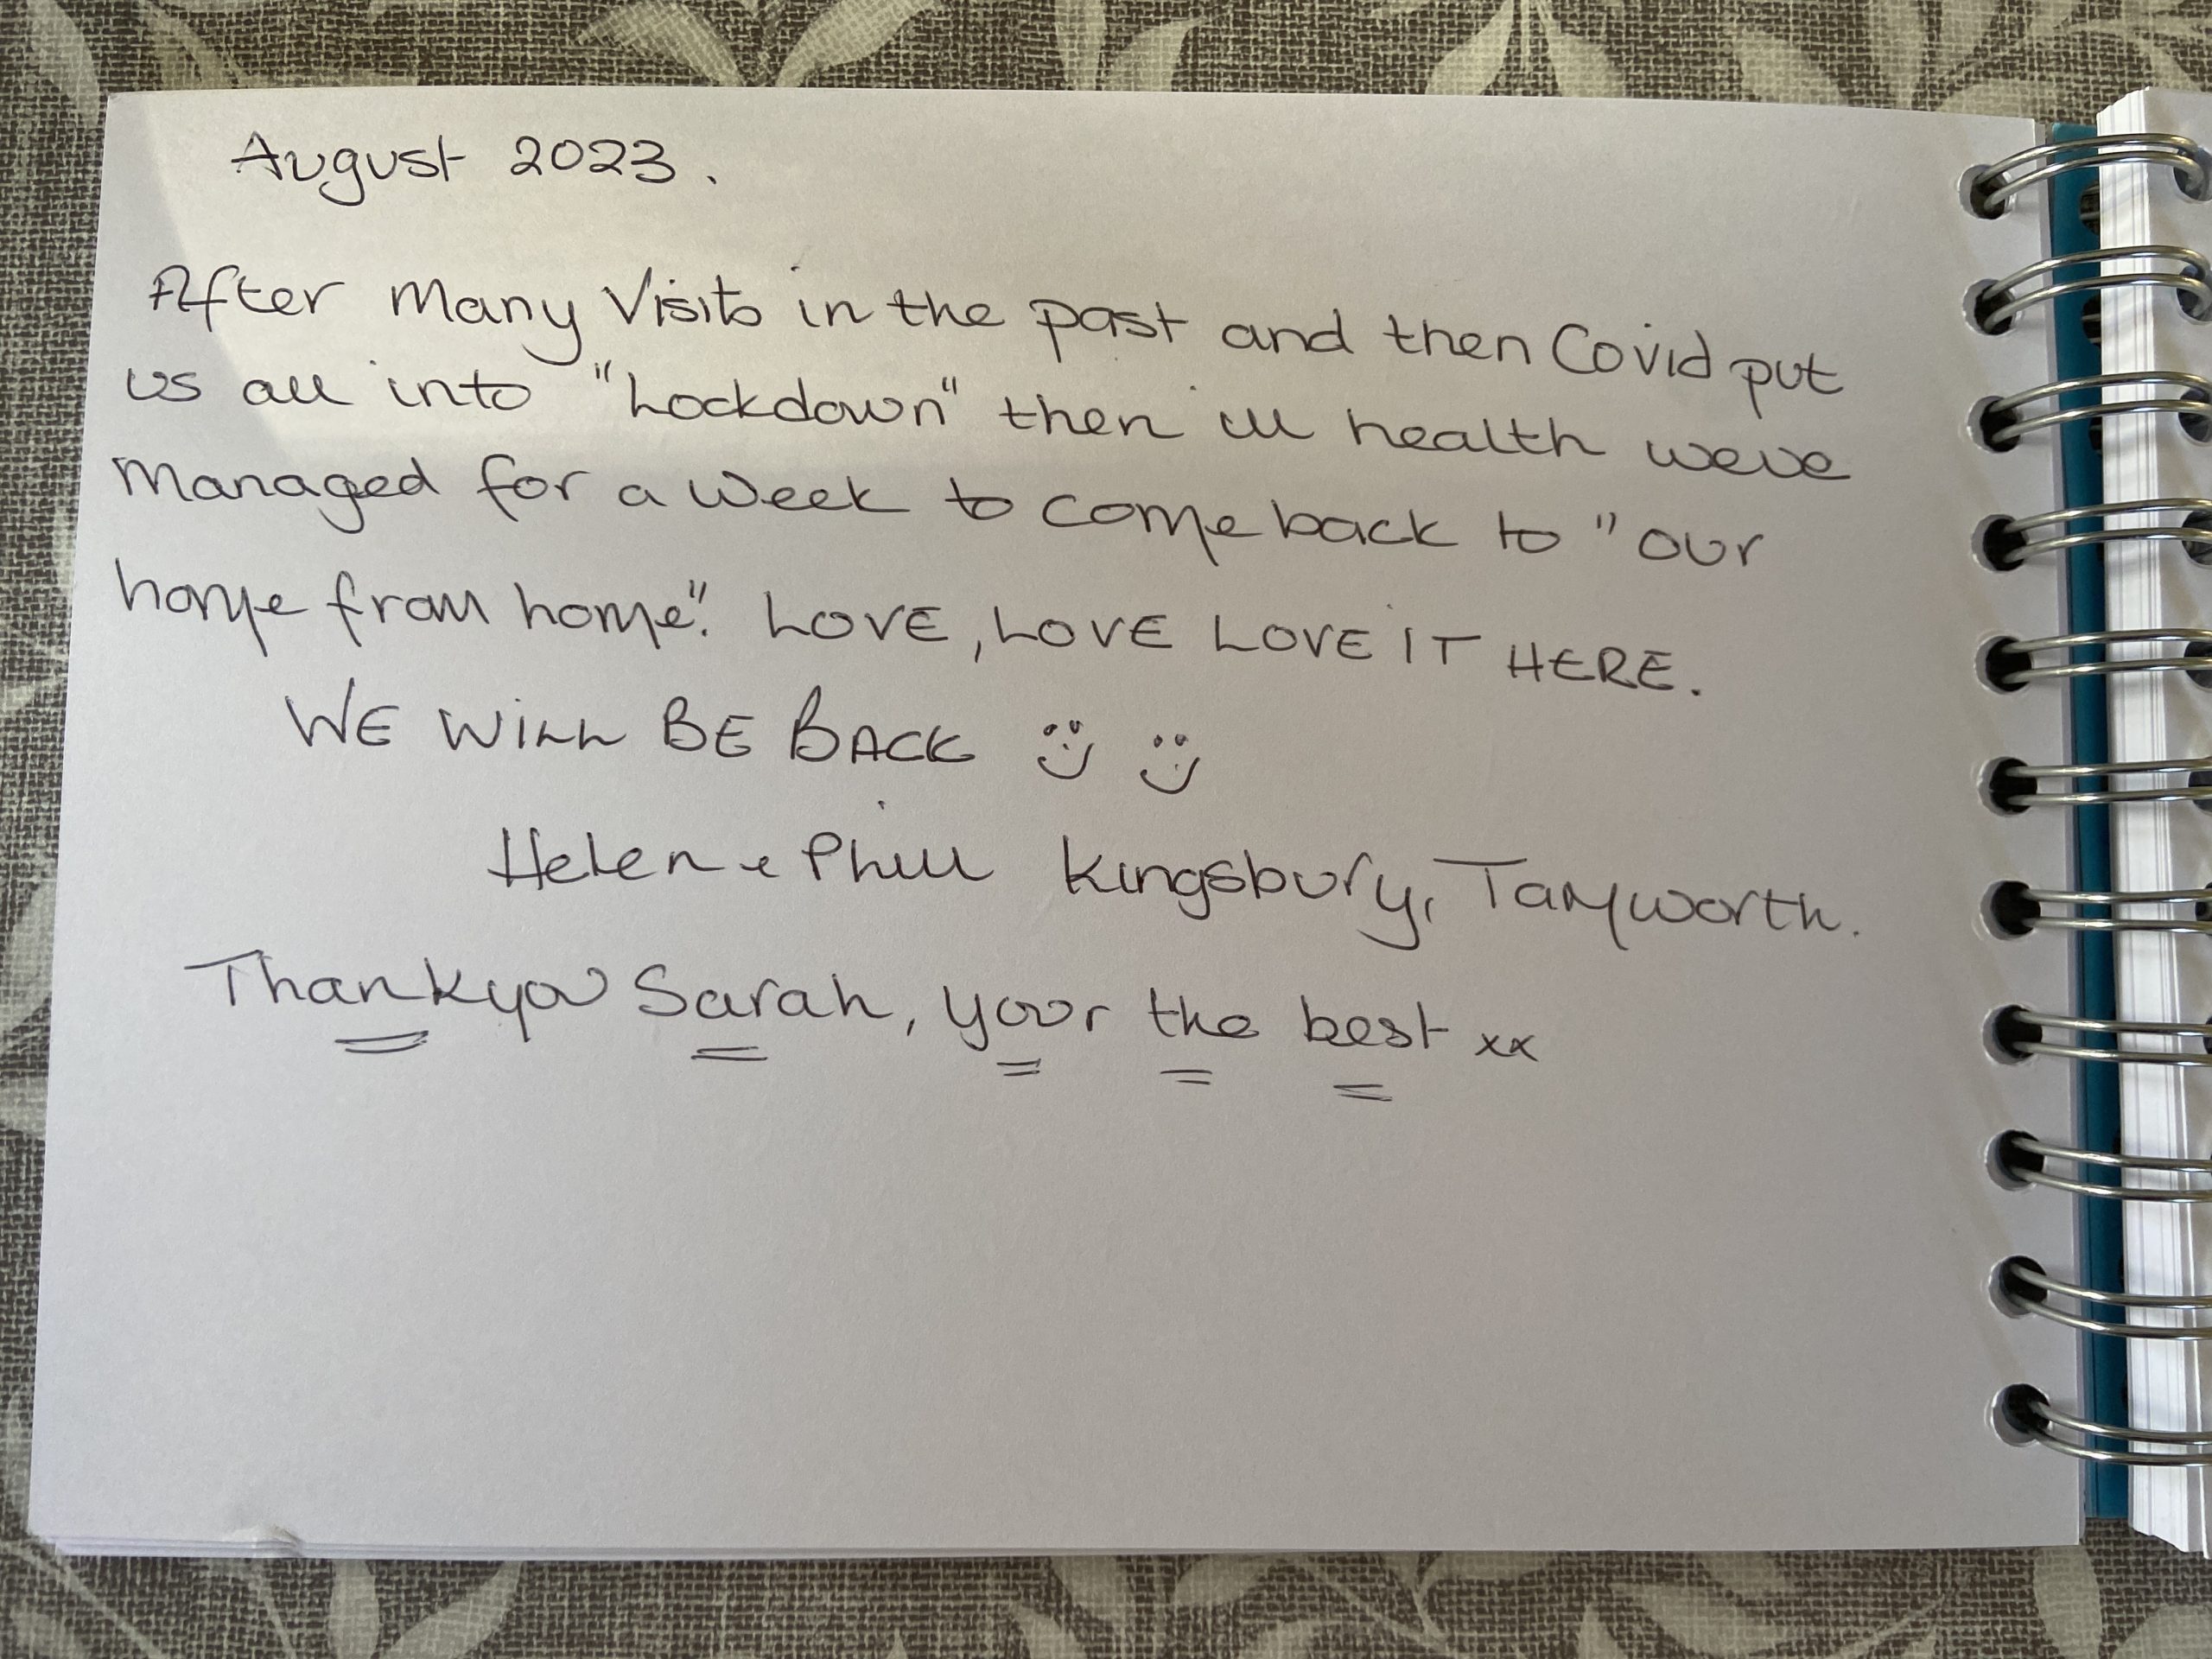 August 2023.
After Many Visits in the past and then Covid put
us all into "Lockdown" then ill health weve
Managed for a week to come back to "our
home from home". LOVE, LOVE LOVE IT HERE.
WE WILL BE BACK
Helen & Phill Kingsbury, Tamworth.
Thankyou Sarah, your the best xx